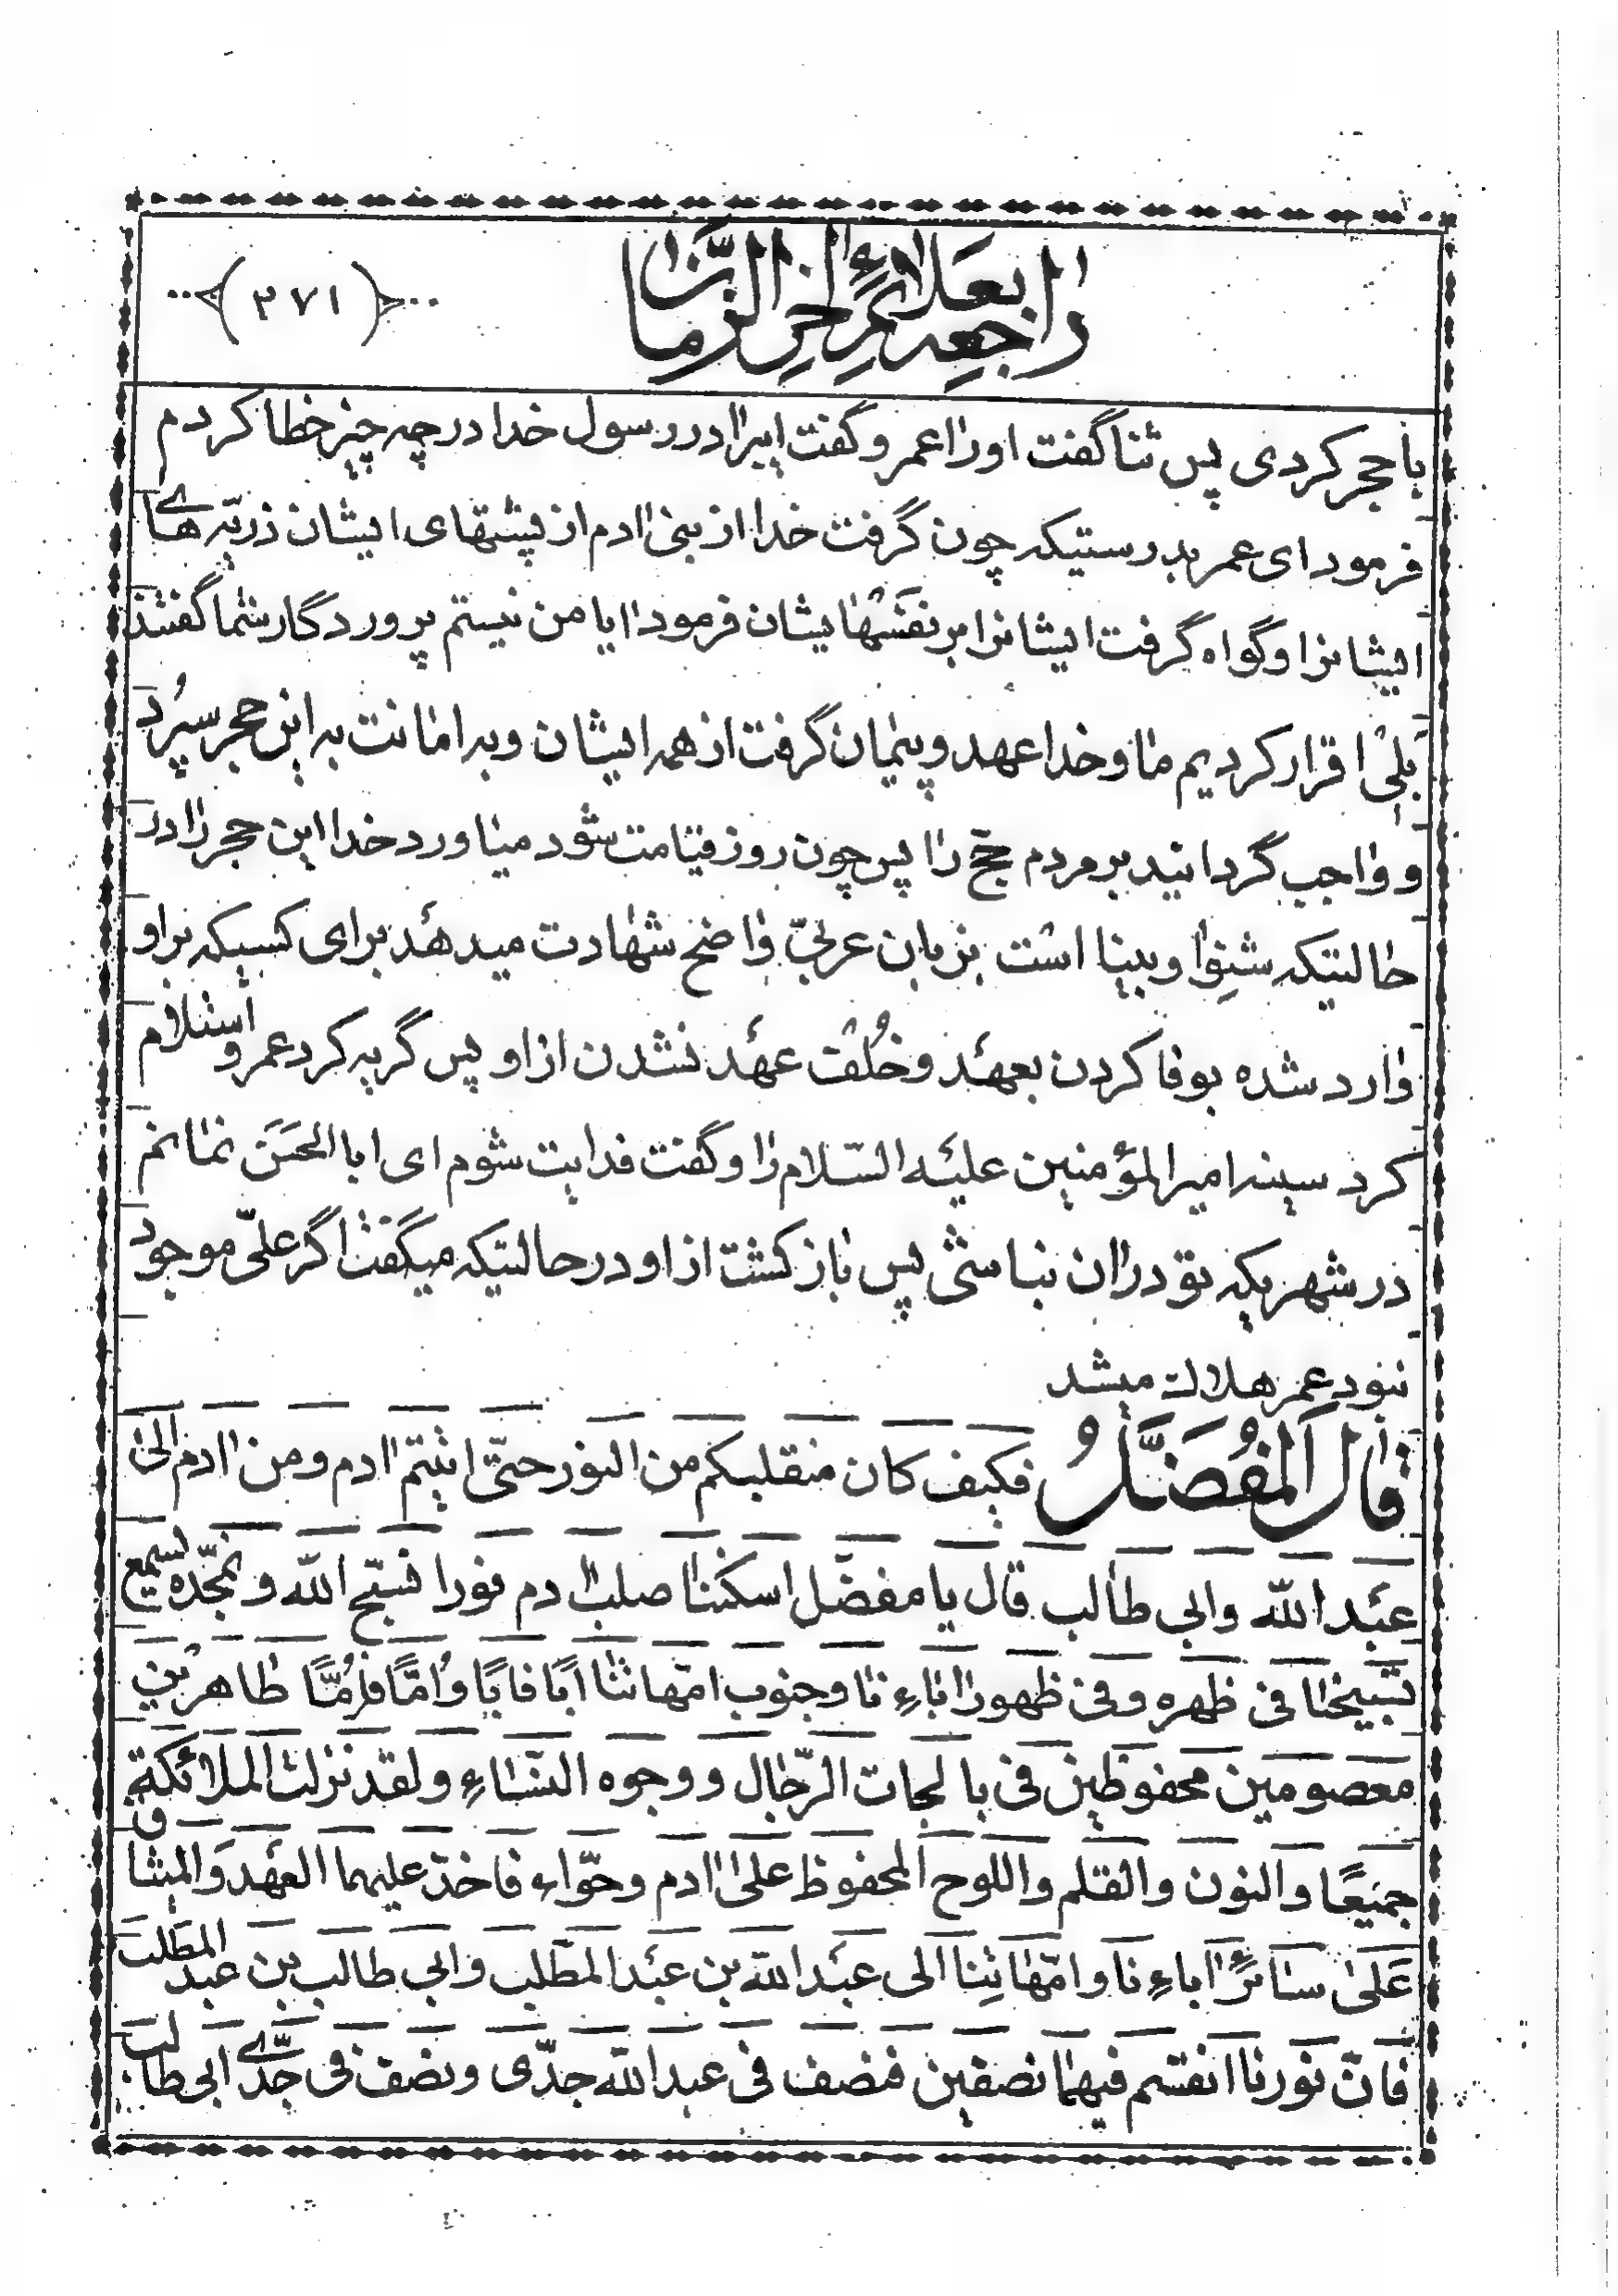 راجعه بعلائم آخر الزمان
(۳۷۱)
با حجر کردی پس ثنا گفت اورا عمر و گفت ایبرادر رسول خدا در چه چیز خطا کردم
فرمود ای عمر بدرستیکه چون گرفت خدا از بنی آدم از پشتهای ایشان ذریّه های
ایشانرا و گواه گرفت ایشانرا بر نفسهایشان فرمود آیا من نیستم پروردگار شما گفتند
بلی اقرار کردیم ما و خدا عهد و پیمان گرفت از همه ایشان و به امانت به این حجر سپُرد
و واجب گردانید بر مردم حجّ را پس چون روز قیامت شود میاورد خدا این حجر را در
حالتیکه شنِوا و بینا است بزبان عربیّ واضح شهادت میدهد برای کسیکه بر او
وارد شده بوفا کردن بعهد و خُلف عهد نشدن از او پس گریه کرد عمر و استلام
کرد سینه امیر المؤمنین علیه السّلام را و گفت فدایت شوم ای ابا الحَسَن نمانم
در شهریکه تو در ان نباشی پس باز کشت از او در حالتیکه میگفت اگر علیّ موجود
نبود عمر هلاك میشد
قال المُفَضَّلُ فکیف کان منقلبکم من النور حتّی اتیتم آدم ومن آدم الی
عبد الله وابی طالب قال یا مفضّل اسکننا صلب آدم نورا نسبّح الله ونمجّده نسمع
تسبیحنا فی ظهره وفی ظهور آباءِ نا وجنوب امّهاتنا ابًا فابًا وامًّا فامًّا طاهرین
معصومین محفوظین فی بالجات الرّجال ووجوه النسّاءِ ولقد نزلت الملائکة
جمیعًا والنون والقلم واللوح المحفوظ علی آدم وحوّاء فاخذ علیهما العهد والمیثاق
عَلی سائرِ آباءِ نا وامّهاتِنا الی عبد الله بن عبد المطّلب وابی طالب بن عبد المطّلب
فانّ نورنا انقسم فیهما نصفین فنصف فی عبد الله جدّی ونصف فی جدّی ابی طالب